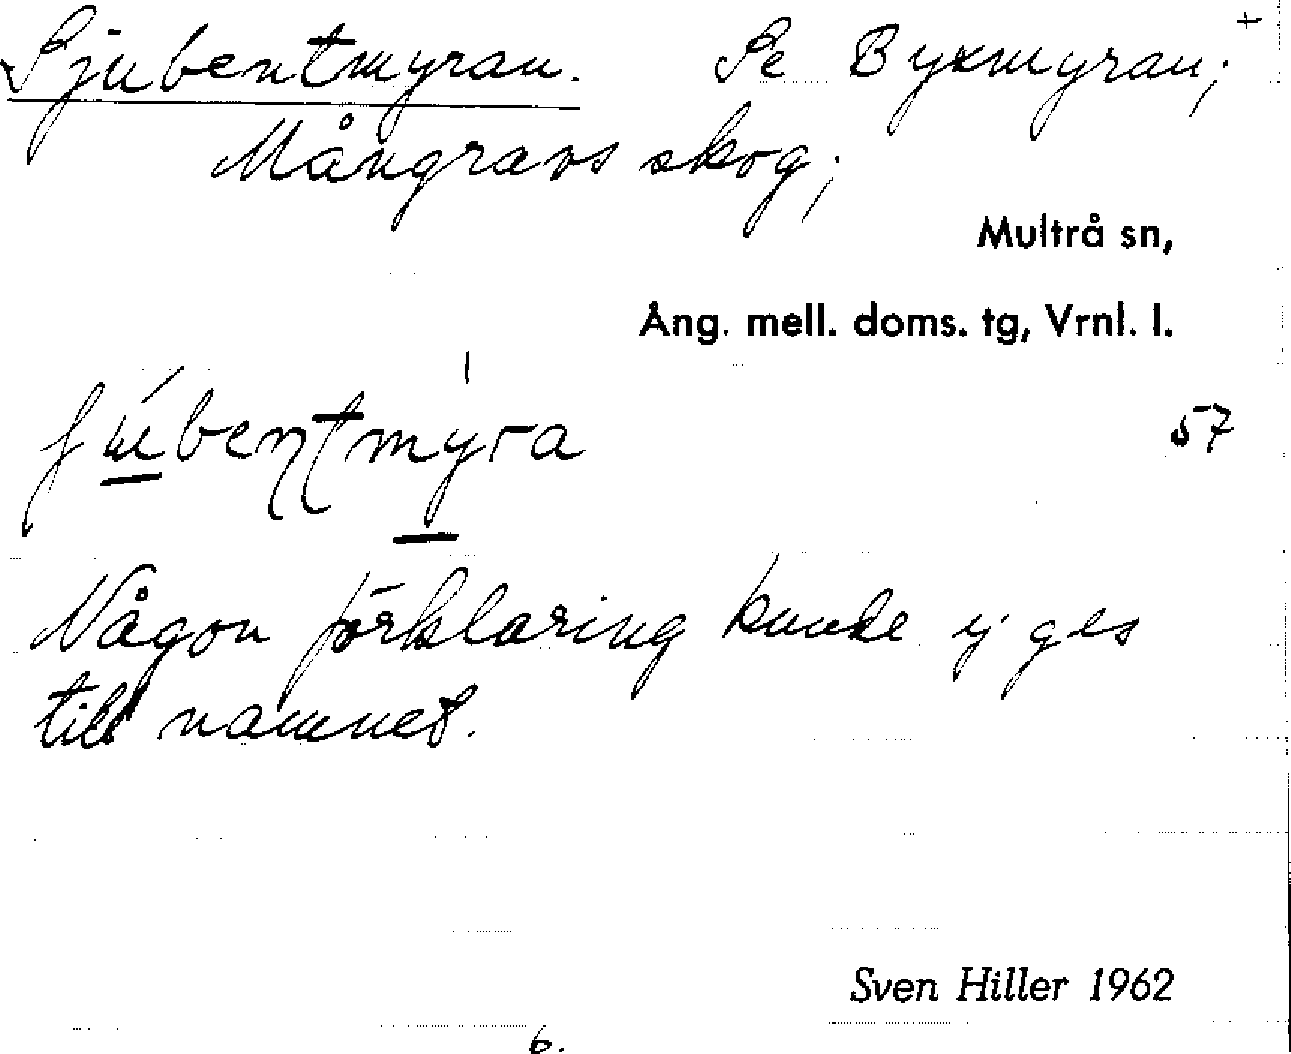 +
Sjubentmyran. Se Byxmyran;
Mångravs skog;
Multrå sn,
Ång. mell. doms. tg, Vrnl. l.
57
Någon förklaring kunde ej ges
till namnet.
Sven Hiller 1962
6.